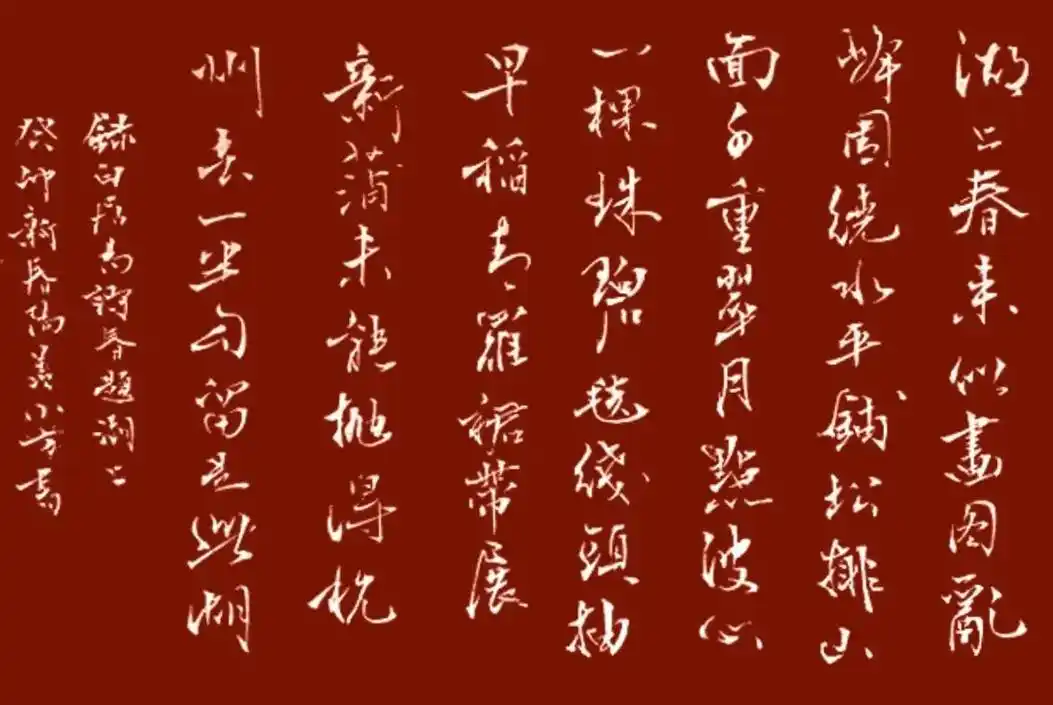 湖上春来似畫图亂
峰圍繞水平鋪松排山
面千重翠月點波心
一棵珠碧毯线頭抽
早稲青羅裙带展
新蒲未能抛得杭
州去一半勾留是此湖
録白居易詩春題湖上
癸卯新春書